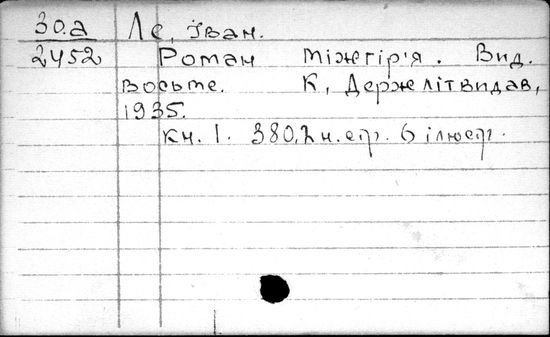 30.а Ле, Іван.
2452 Роман міжгір'я. Вид.
восьме. К, Держлітвидав,
1935.
кн. 1. 380,2 н. стр. 6 ілюстр.